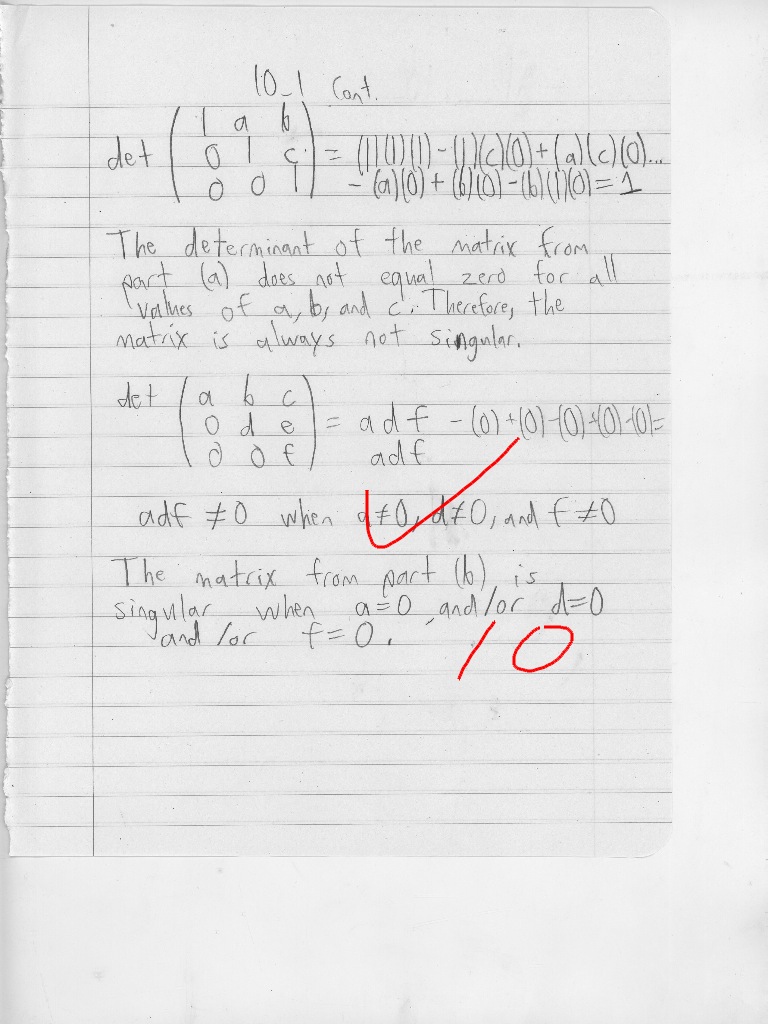 10_1 Cont.
det ( 1 a b
0 1 c
0 0 1 ) = (1)(1)(1) - (1)(c)(0) + (a)(c)(0)...
- (a)(0) + (b)(0) - (b)(1)(0) = 1
The determinant of the matrix from
part (a) does not equal zero for all
values of a, b, and c. Therefore, the
matrix is always not singular.
det ( a b c
0 d e
0 0 f ) = adf - (0) + (0) - (0) + (0) - (0) =
adf
adf ≠ 0 when a≠0, d≠0, and f≠0
The matrix from part (b) is
singular when a=0 and/or d=0
and/or f=0.
10